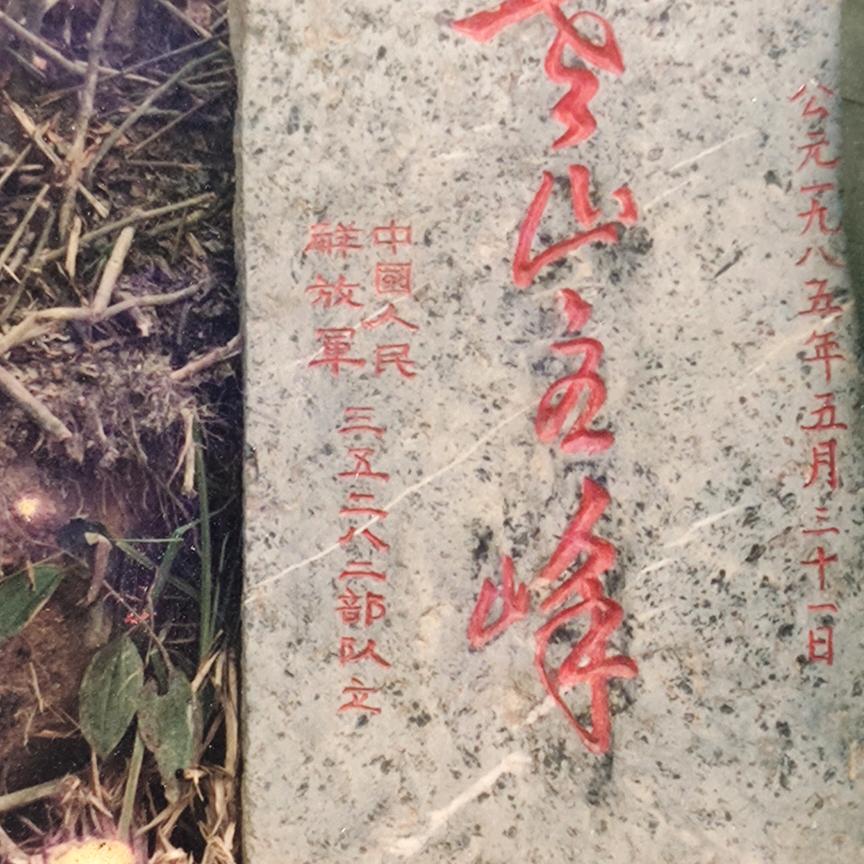 公元一九八五年五月三十一日
老山主峰
中國人民
解放軍
三五二八二部队立